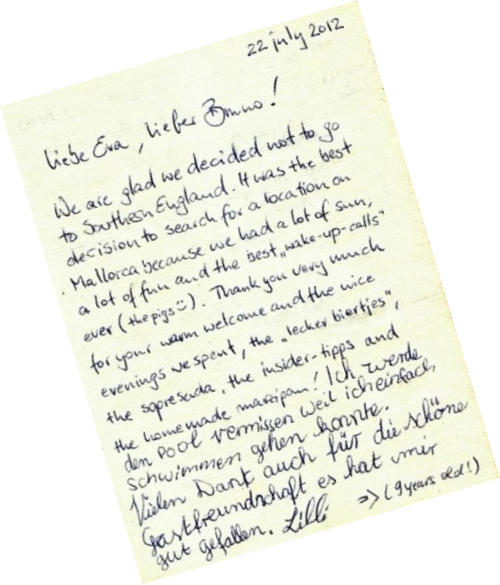 22 july 2012
Liebe Eva, lieber Bruno!
We are glad we decided not to go
to Southern England. It was the best
decision to search for a location on
Mallorca because we had a lot of sun,
a lot of fun and the best „wake-up-calls"
ever (the pigs :)). Thank you very much
for your warm welcome and the nice
evenings we spent, the „lecker biertjes",
the sopresada, the insider-tipps and
the homemade marzipan! Ich werde
den Pool vermissen weil ich einfach
schwimmen gehen konnte.
Vielen Dank auch für die schöne
Gastfreundschaft es hat mir
gut gefallen. Lilli => (9 years old!)